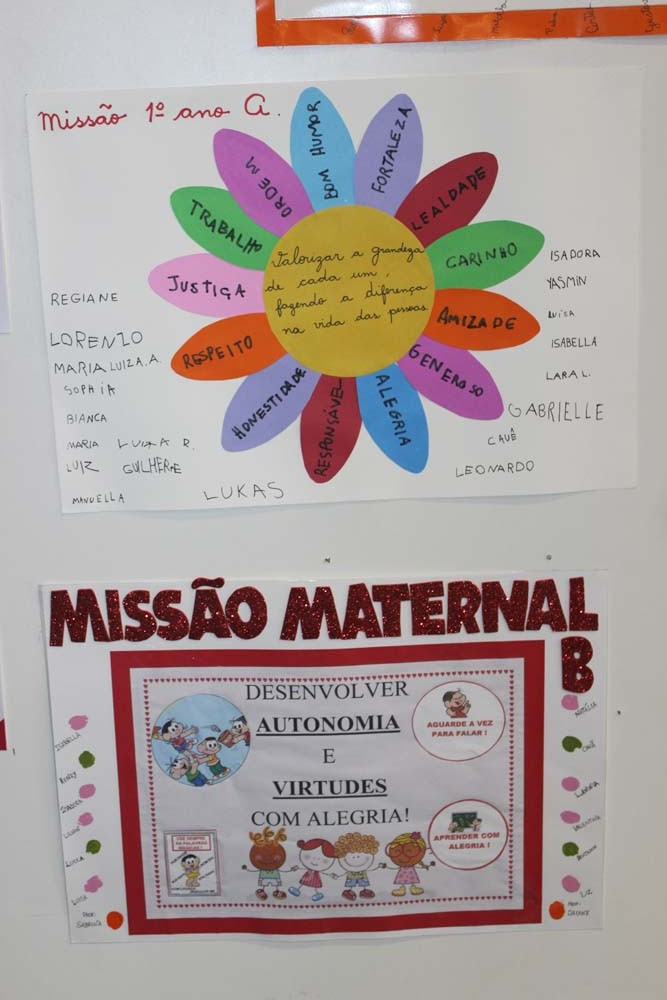 Missão 1º ano A.
BOM HUMOR
FORTALEZA
LEALDADE
CARINHO
AMIZADE
GENEROSO
ALEGRIA
RESPONSÁVEL
HONESTIDADE
RESPEITO
JUSTIÇA
TRABALHO
ORDEM
Valorizar a grandeza
de cada um,
fazendo a diferença
na vida das pessoas.
REGIANE
LORENZO
MARIA LUIZA. A.
SOPHIA
BIANCA
MARIA LUIZA R.
LUIZ GUILHERME
MANUELLA
LUKAS
ISADORA
YASMIN
LUISA
ISABELLA
LARA L.
GABRIELLE
CAUÊ
LEONARDO
MISSÃO MATERNAL
B
DESENVOLVER
AUTONOMIA
E
VIRTUDES
COM ALEGRIA!
AGUARDE A VEZ
PARA FALAR !
APRENDER COM
ALEGRIA !
USE SEMPRE
AS PALAVRAS
MÁGICAS!
ISABELLA
LUCCA
PROF.
SABRINA
NATÁLIA
CAUÊ
LARISSA
VALENTINA
LIZ
PROF.